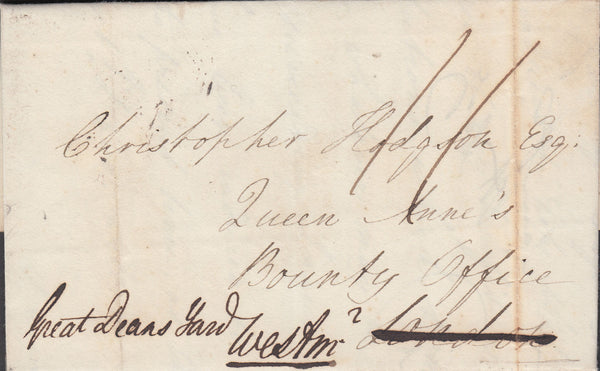 Christopher Hodgson Esq:
Queen Anne's
Bounty Office
Great Deans Yard Westmr London